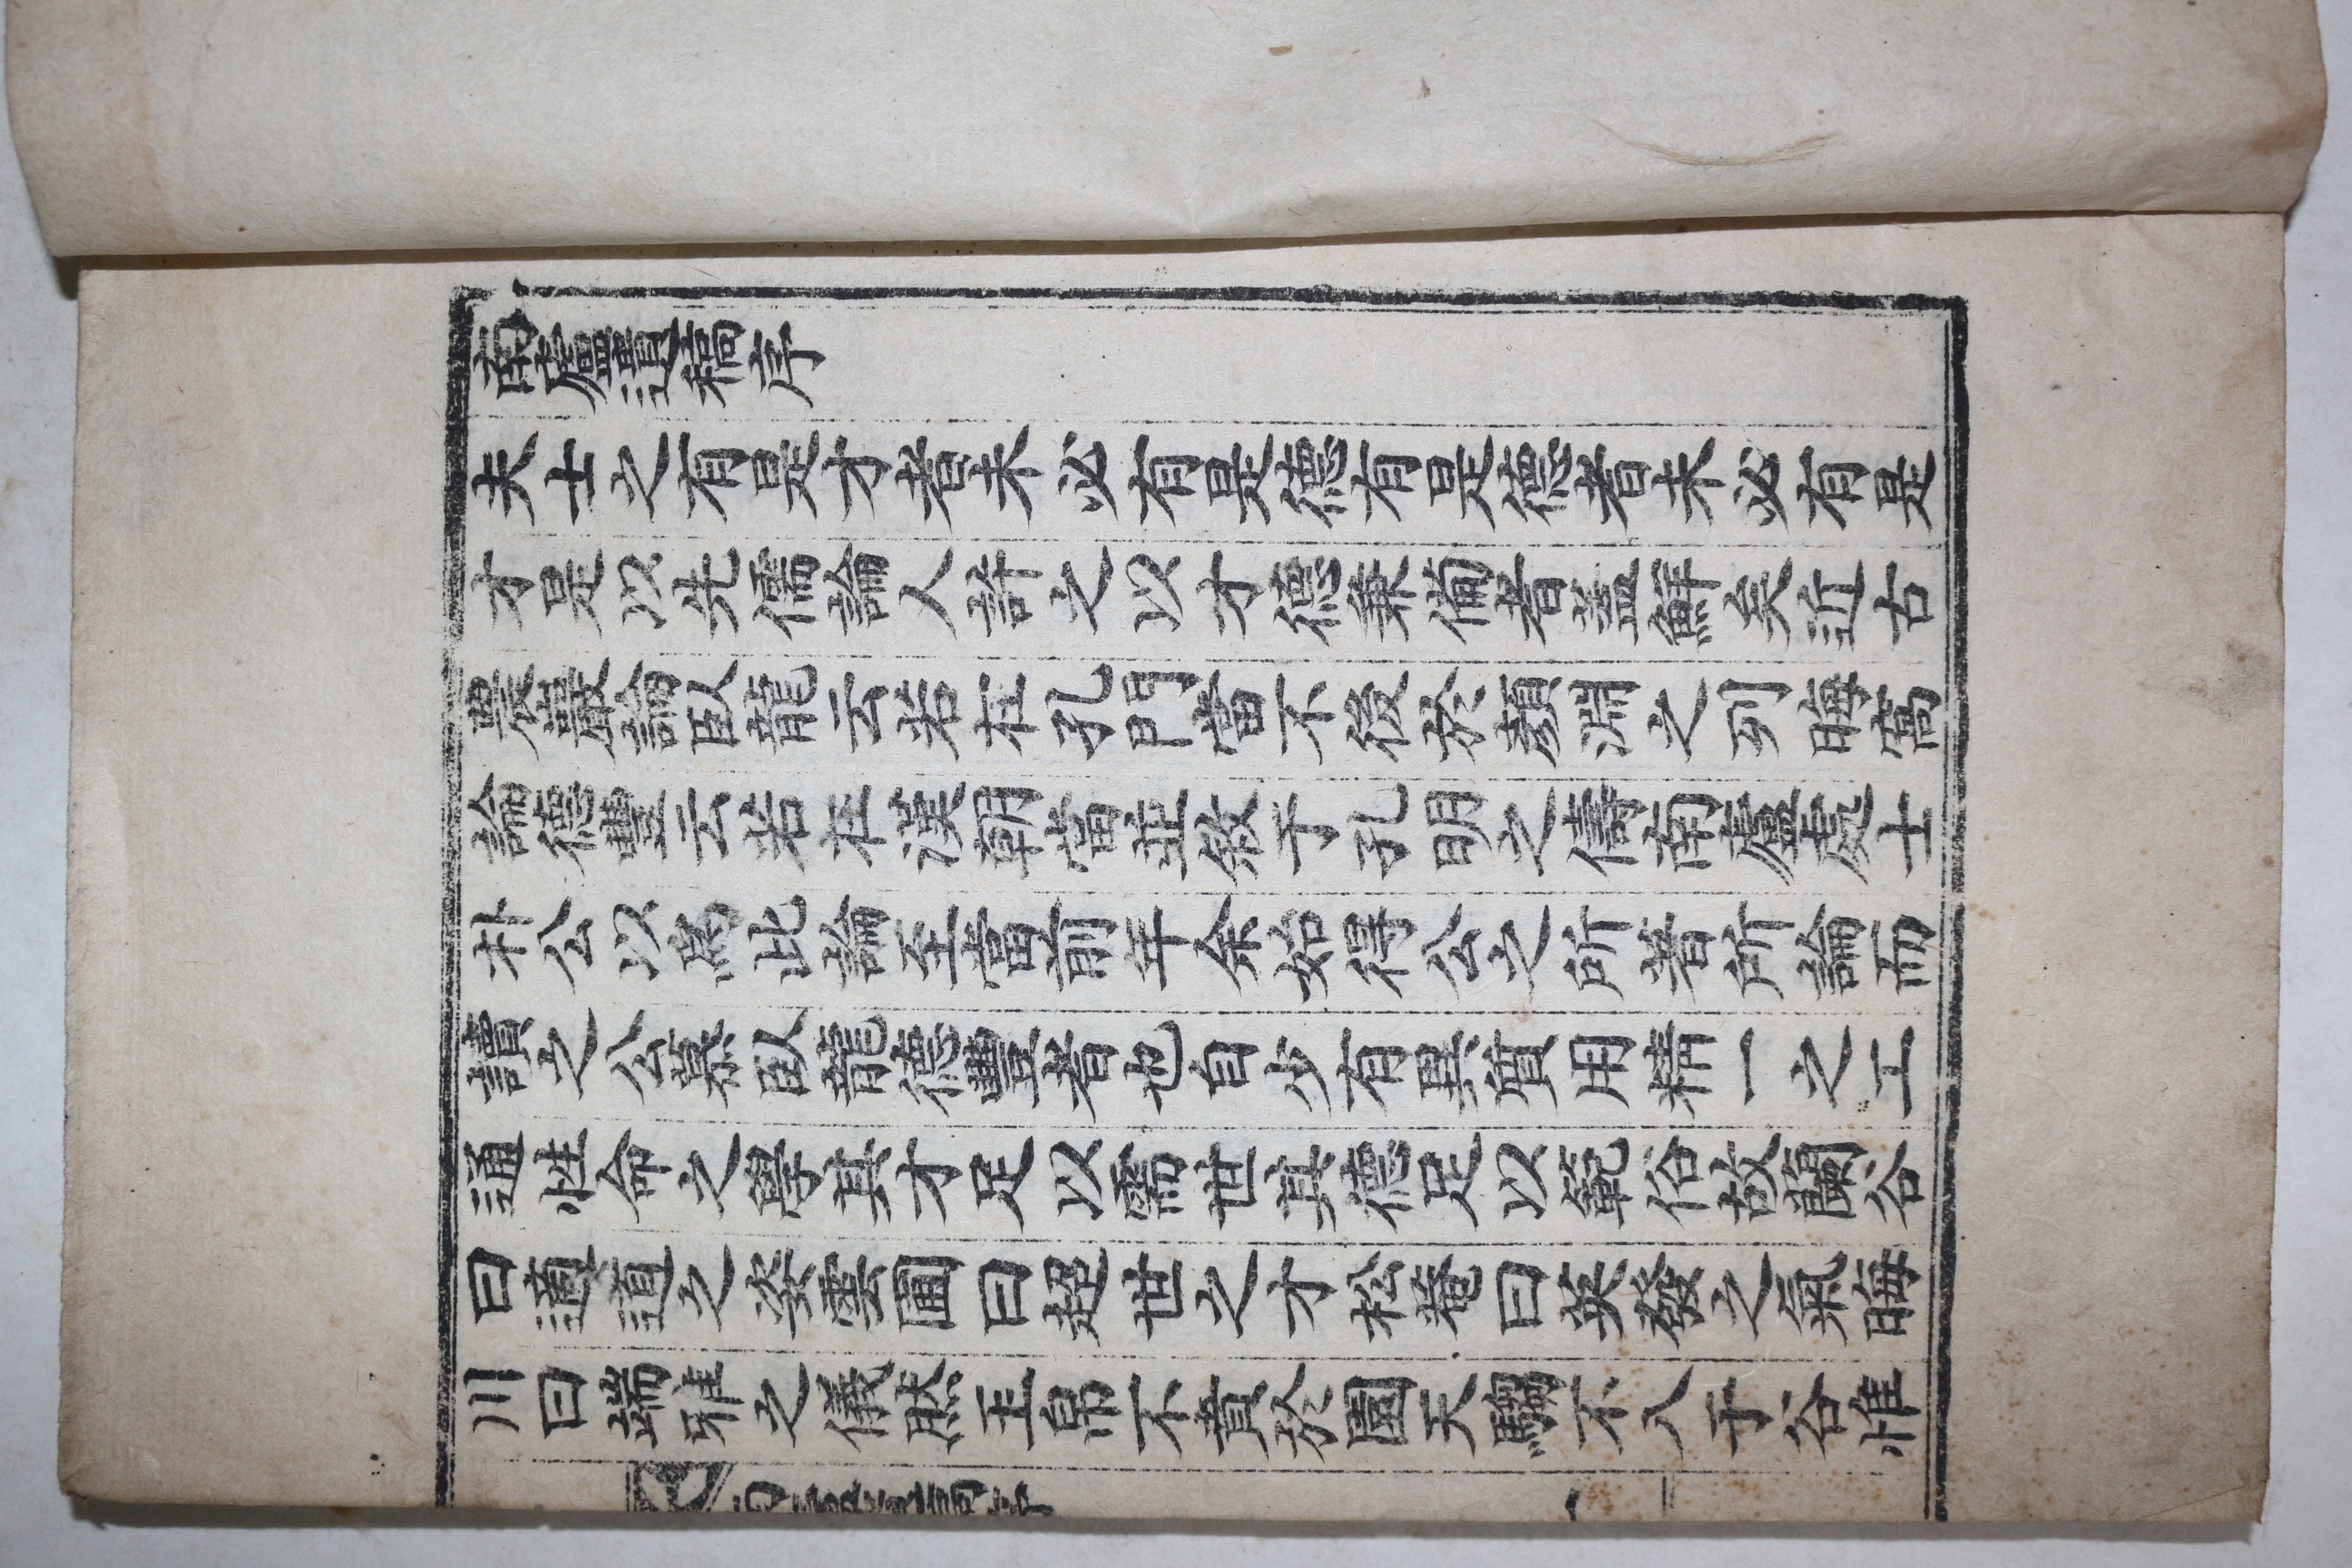 南廬遺稿序
夫士之有是才者未必有是德有是德者未必有是
才是以先儒論人許之以才德兼備者盖鮮矣近古
農巖論臥龍云若在孔門當不後於顔淵之列晦窩
論德豊云若在漢朝當並發于孔明之儔南廬處士
朴公以爲此論至當前年余始得公之所著所論而
讀之公慕臥龍德豊者也自少有異質用精一之工
通性命之學其才足以需世其德足以範俗故蘭谷
曰適道之姿雲圃曰超世之才松菴曰英發之氣晦
川曰端雅之儀然玉帛不賁於園天不入于谷惟